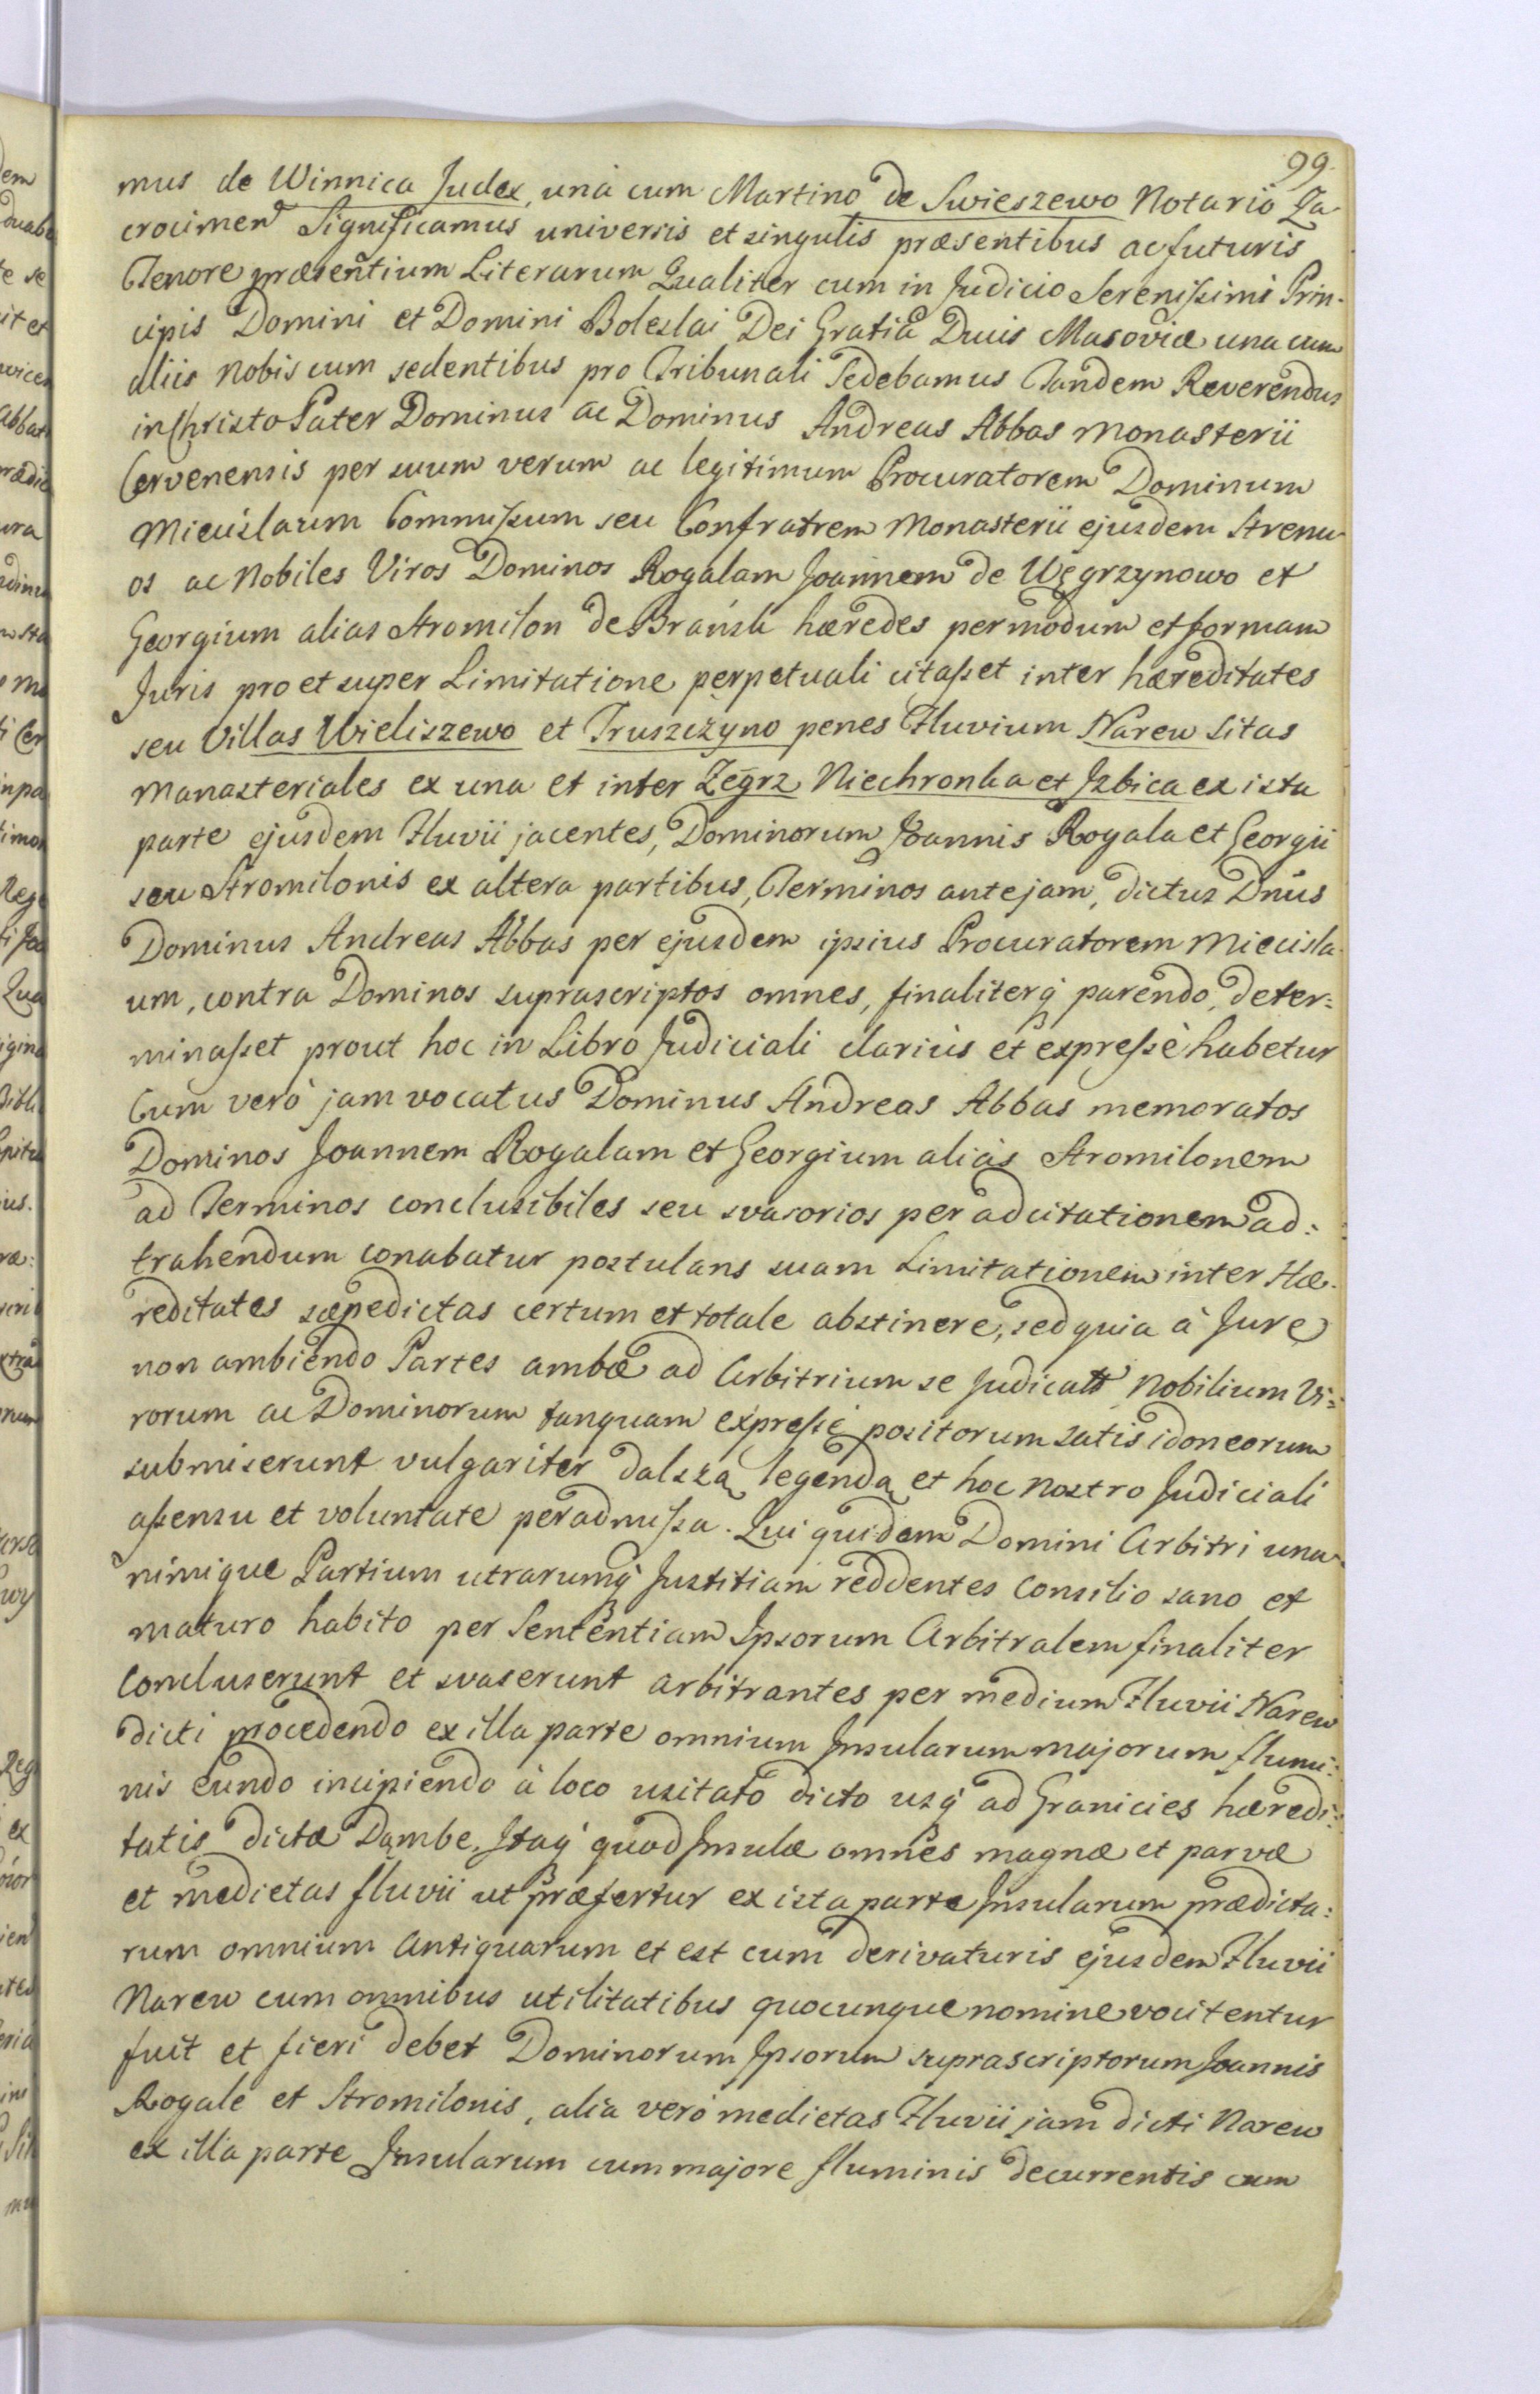 99.
mus de Winnica Judex, unà cum Martino de Swieszewo Notario Za-
crocimen Significamus universis et singulis præsentibus ac futuris
Tenore præsentium Literarum Qualiter cum in Judicio Serenissimi Prin-
cipis Domini et Domini Boleslai Dei Gratiâ Ducis Masoviæ una cum
aliis nobiscum sedentibus pro Tribunali Sedebamus Tandem Reverendus
in Christo Pater Dominus ac Dominus Andreas Abbas Monasterii
Cervenensis per suum verum ac legitimum Procuratorem Dominum
Miecislaum Commissum seu Confratrem Monasterii ejusdem Strenu-
os ac Nobiles Viros Dominos Rogalam Joannem de Węgrzynowo et
Georgium alias Stromilon de Brańsk hæredes per modum et formam
Juris pro et super Limitatione perpetuali citasset inter hæreditates
seu Villas Wieliszewo et Truszczyno penes Fluvium Narew sitas
Manasteriales ex una et inter Zegrz Niechronka et Izbica ex ista
parte ejusdem Fluvii jacentes, Dominorum Joannis Rogala et Georgii
seu Stromilonis ex altera partibus, Terminos antejam, dictus Dnus
Dominus Andreas Abbas per ejusdem ipsius Procuratorem Miecisla-
um, contra Dominos suprascriptos omnes, finaliterq parendo, deter=
minasset prout hoc in Libro Judiciali clariùs et expressè habetur
Cum verò jam vocatus Dominus Andreas Abbas memoratos
Dominos Joannem Rogalam et Georgium aliàs Stromilonem
ad Terminos conclusibiles seu svasorios per adcitationem ad:
trahendum conabatur postulans suam Limitationem inter Hæ-
reditates sæpedictas certum et totale abstinere, sed quia à Jure
non ambiendo Partes ambæ ad Arbitrium se Nobilium Vi:
rorum ac Dominorum tanquam expressè positorum satis idoneorum
submiserunt vulgariter dalszą legendą et hoc nostro Judiciali
assensu et voluntate peradmissa. Qui quidem Domini Arbitri una-
nimique Partium utrarumq Justitiam reddentes Consilio sano et
maturo habito per Sententiam Ipsorum Arbitralem finaliter
Concluserunt et svaserunt arbitrantes per medium Fluvii Narew
dicti procedendo ex illa parte omnium Insularum majorum flumi:
nis eundo incipiendo à loco usitato dicto usq ad Granicies hæredi:
tatis dictæ Dąmbe, Itaq quod Insulæ omnes magnæ et parvæ
et medietas fluvii ut præfertur ex ista parte Insularum prædicta:
rum omnium Antiquarum et est cum derivaturis ejusdem Fluvii
Narew cum omnibus utilitatibus quocunque nomine vocitentur
fuit et fieri debet Dominorum Ipsorum suprascriptorum Joannis
Rogale et Stromilonis, alia verò medietas Fluvii jam dicti Narew
ex illa parte Insularum cum majore fluminis decurrentis cum